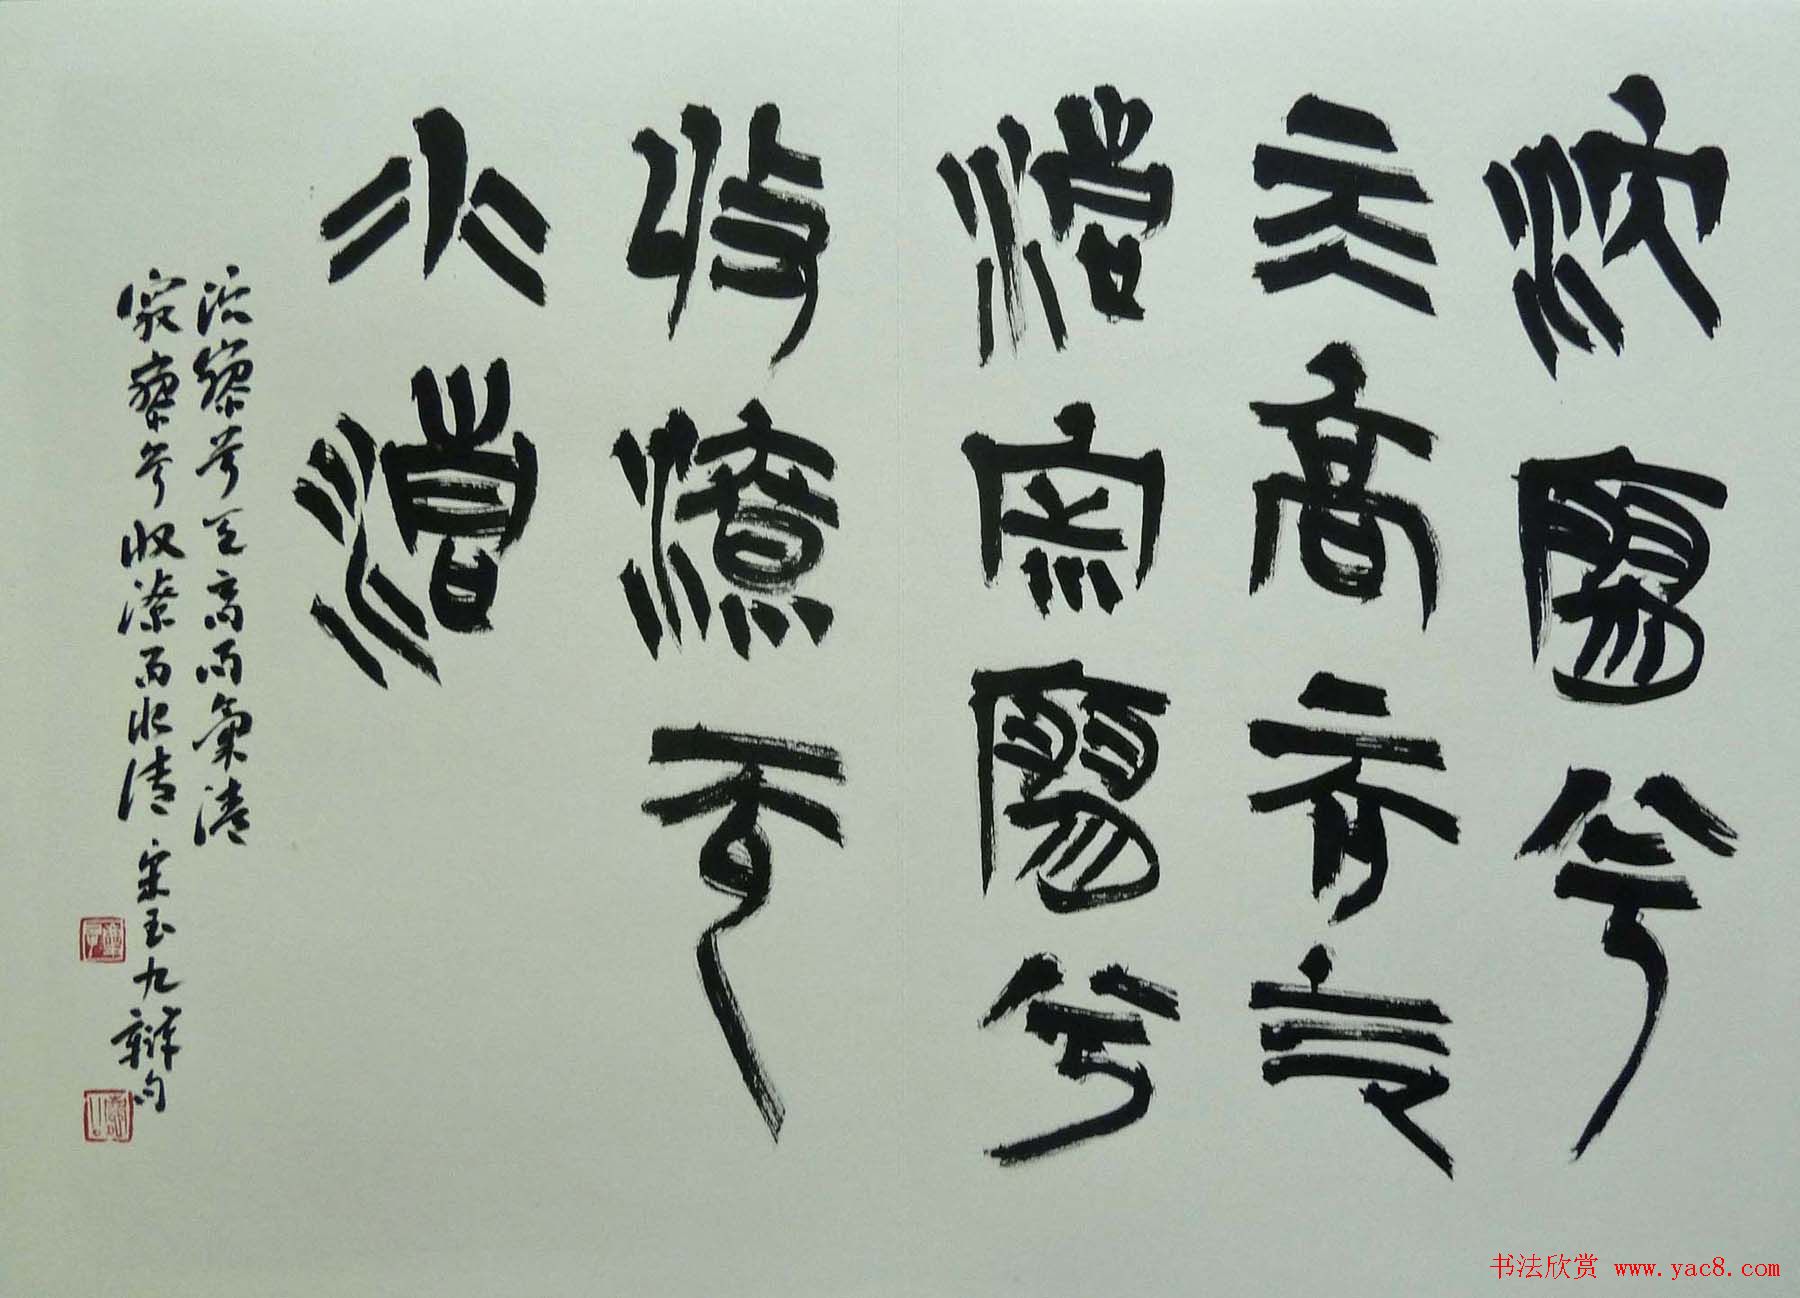 泬寥兮
天高而气
清寂寥兮
收潦而
水清
泬寥兮天高而氣清
寂寥兮收潦而水清 宋玉九辯句
书法欣赏 www.yac8.com